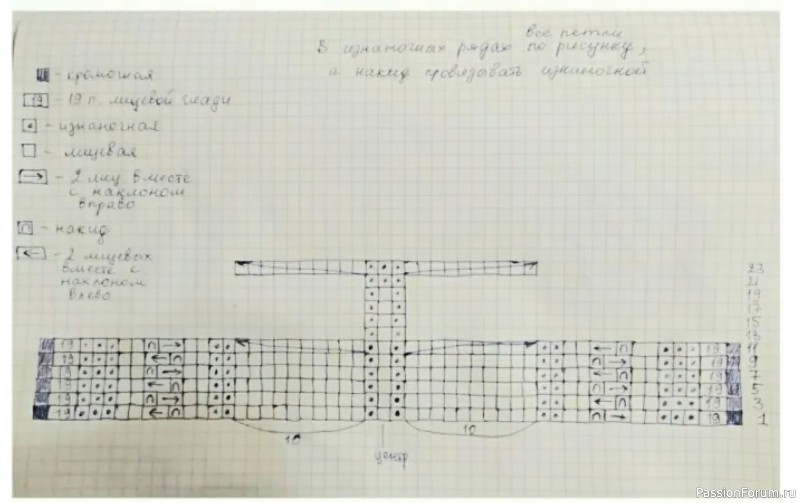 В изнаночных рядах все петли по рисунку,
а накид провязывать изнаночной
- кромочная
19 - 19 п. лицевой глади
- изнаночная
- лицевая
→ - 2 лиц вместе
с наклоном
вправо
∩ - накид
← - 2 лицевых
вместе с
наклоном
влево
23
21
19
17
15
13
19 ∩ → ← ∩ 19 11
19 ← ∩ ∩ → 19 9
19 ∩ → ← ∩ 19 7
19 ← ∩ ∩ → 19 5
19 ∩ → ← ∩ 19 3
19 ← ∩ ∩ → 19 1
10 10
центр
PassionForum.ru